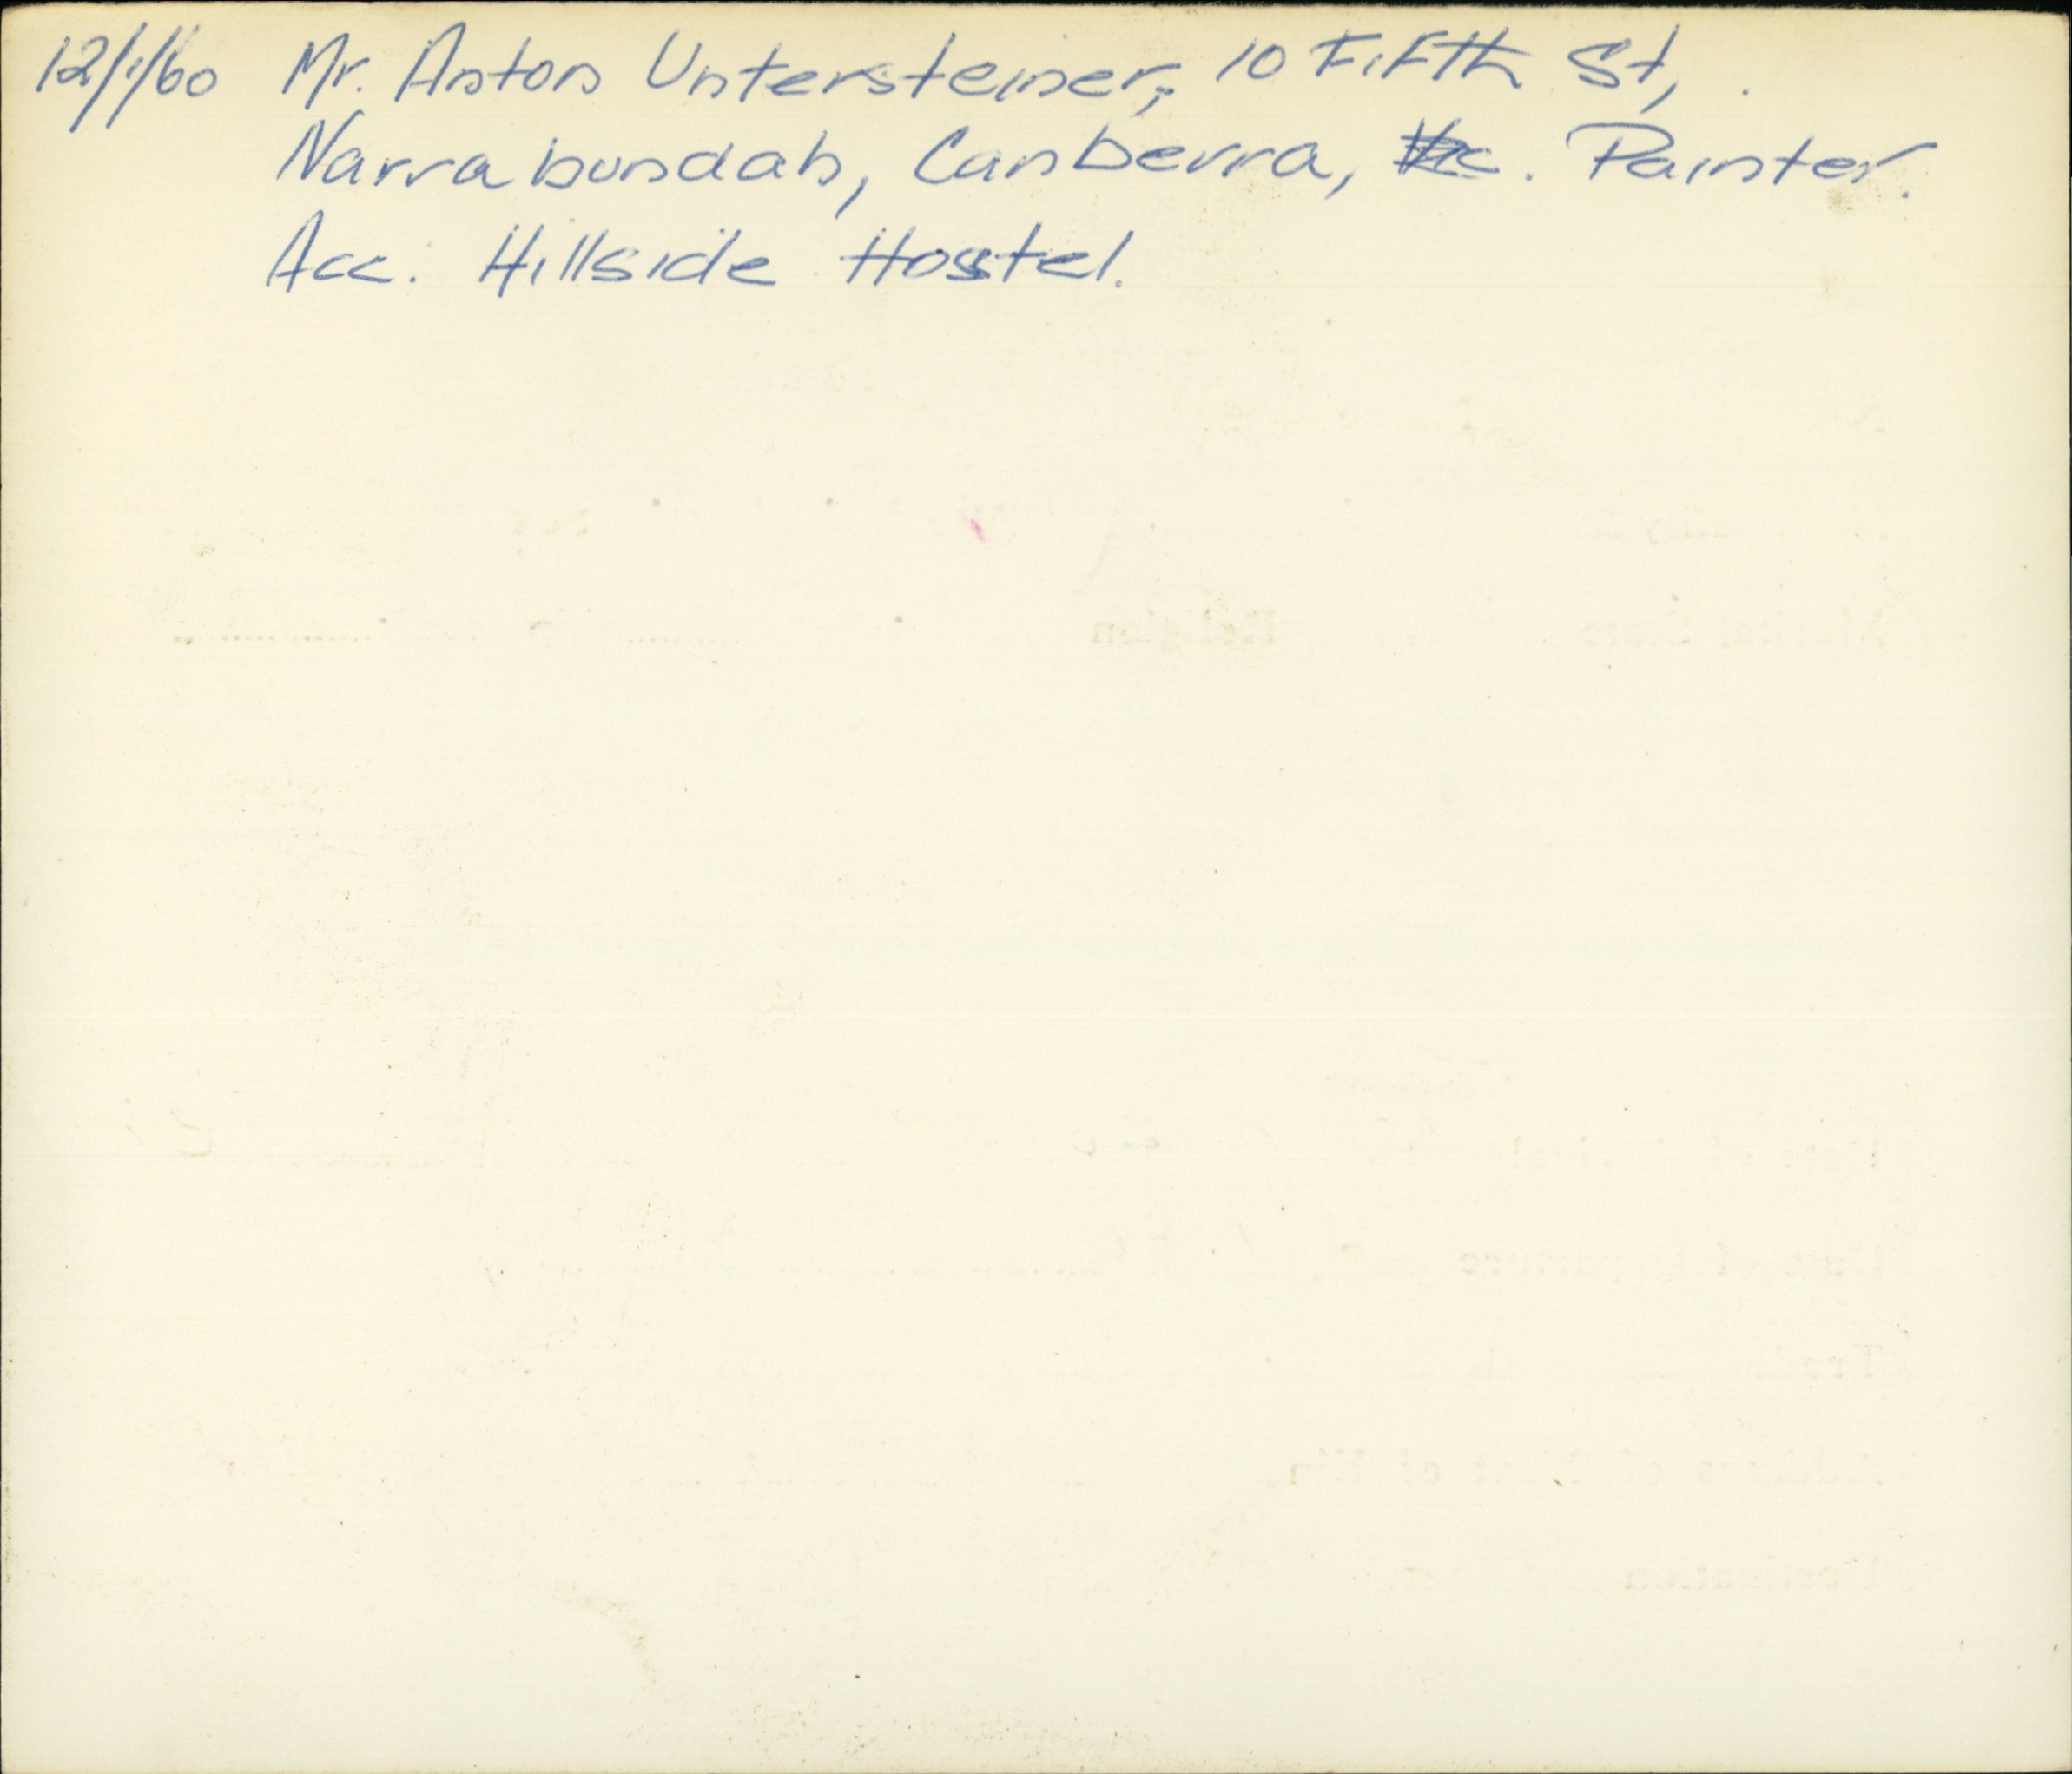 12/1/60 Mr. Anton Untersteiner, 10 Fifth St,
Narrabundah, Canberra, Painter.
Acc. Hillside Hostel.